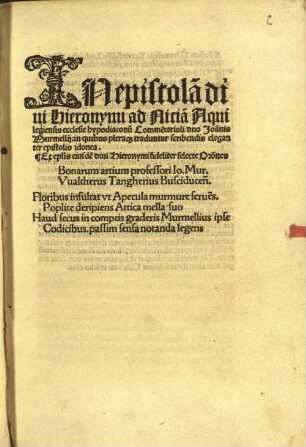 INepistolā di
ui Hieronymi ad Niciā Aqui
legiensis ecclesie hypodiaconū Commētarioli dno Joānis
Murmellij: in quibus pleraq; traduntur scribendis elegan
ter epistolis idonea.
¶ Ex eplis eiusdē diui Hieronymi fideliter selecte Orōnes
Bonarum artium professori Io. Mur.
Vualtherus Tangherius Busciduceñ.
Floribus insultat vt Apecula murmure feruēs,
Poplite deripiens Attica mella suo
Haud secus in comptis graderis Murmellius ipse
Codicibus, passim sensa notanda legens